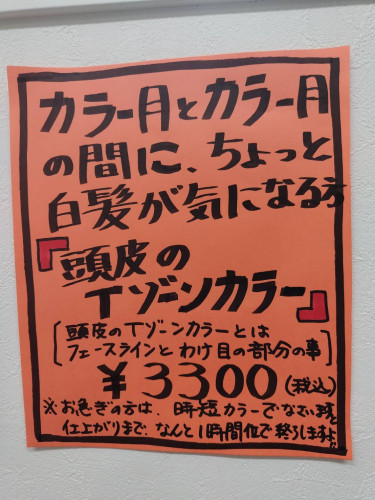 カラー月とカラー月
の間に、ちょっと
白髪が気になる方
『頭皮の
Tゾーンカラー』
[頭皮のTゾーンカラーとは
フェースラインとわけ目の部分の事]
¥3300(税込)
※お急ぎの方は、時短カラーで
仕上がりまで、なんと1時間位で終らしますよ!!